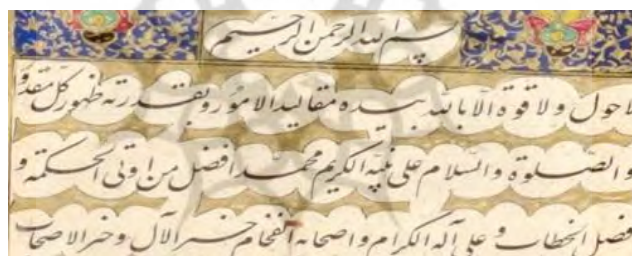 بسم الله الرحمن الرحیم
لاحول ولا قوة الا بالله بیده مقالید الامور وبقدرته ظهور کل مقدور
والصلوة والسلام علی نبیه الکریم محمد افضل من اوتی الحکمة و
فصل الخطاب و علی آله الکرام واصحابه الفخام خیر الآل وخیر الاصحاب